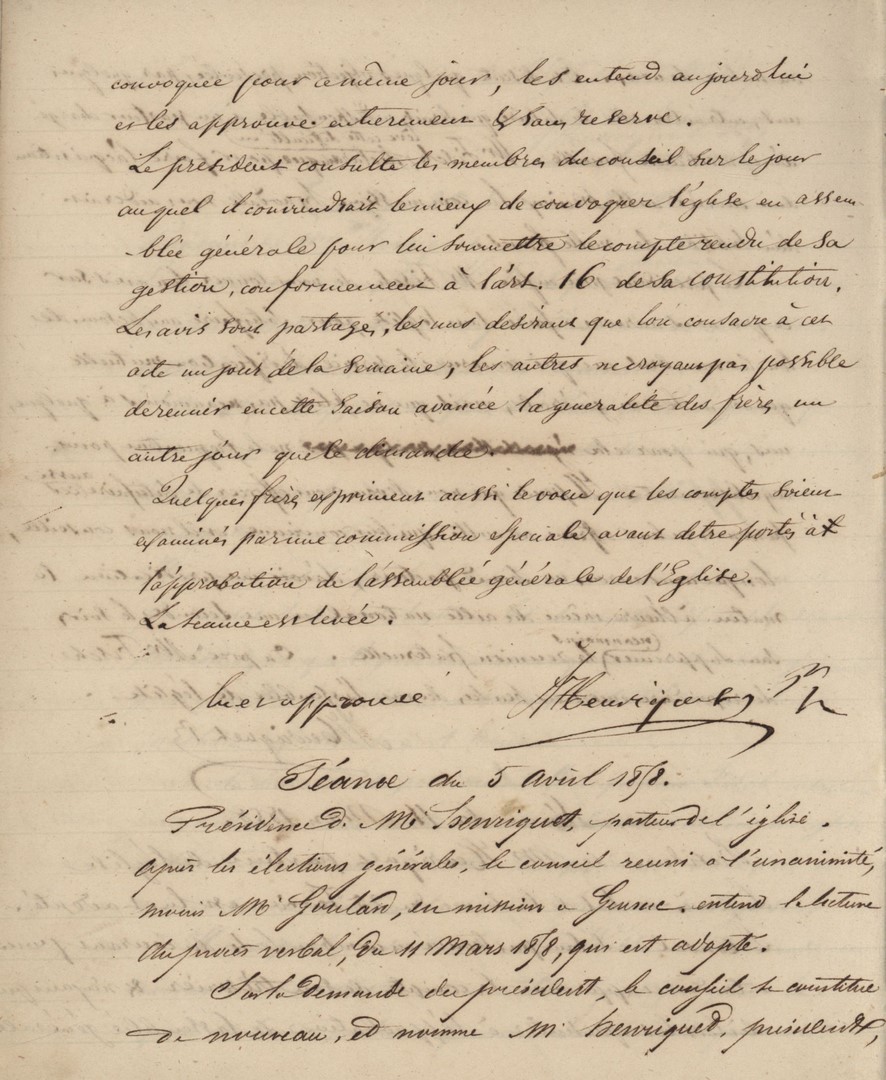 convoquée pour ce même jour, les entend aujourdhui
et les approuve entierement & sans reserve.
Le président consulte les membres du conseil sur le jour
auquel il conviendrait le mieux de convoquer l'église en assem
-blée générale pour lui soumettre le compte rendu de sa
gestion, conformement à l'art. 16 de sa constitution.
Les avis sont partagés, les uns desirant que l'on consacre à cet
acte un jour de la semaine, les autres ne croyant pas possible
de reunir en cette saison avancée la generalité des frères un
autre jour que le dimanche.
Quelques frères expriment aussi le voeu que les comptes soient
examinés par une commission speciale avant detre portés à
l'approbation de l'assemblée générale de l'Eglise.
La séance est levée.
lu et approuvé Henriquet
Séance du 5 avril 1858.
Présidence d. Mr henriquet, pasteur de l'église.
après les élections générales, le conseil reuni a l'unanimité,
moins Mr Goulard, en mission a entend la lecture
du procès verbal, du 11 Mars 1858, qui est adopté.
Sur la demande du président, le conseil se constitue
de nouveau, et nomme Mr henriqued, président,